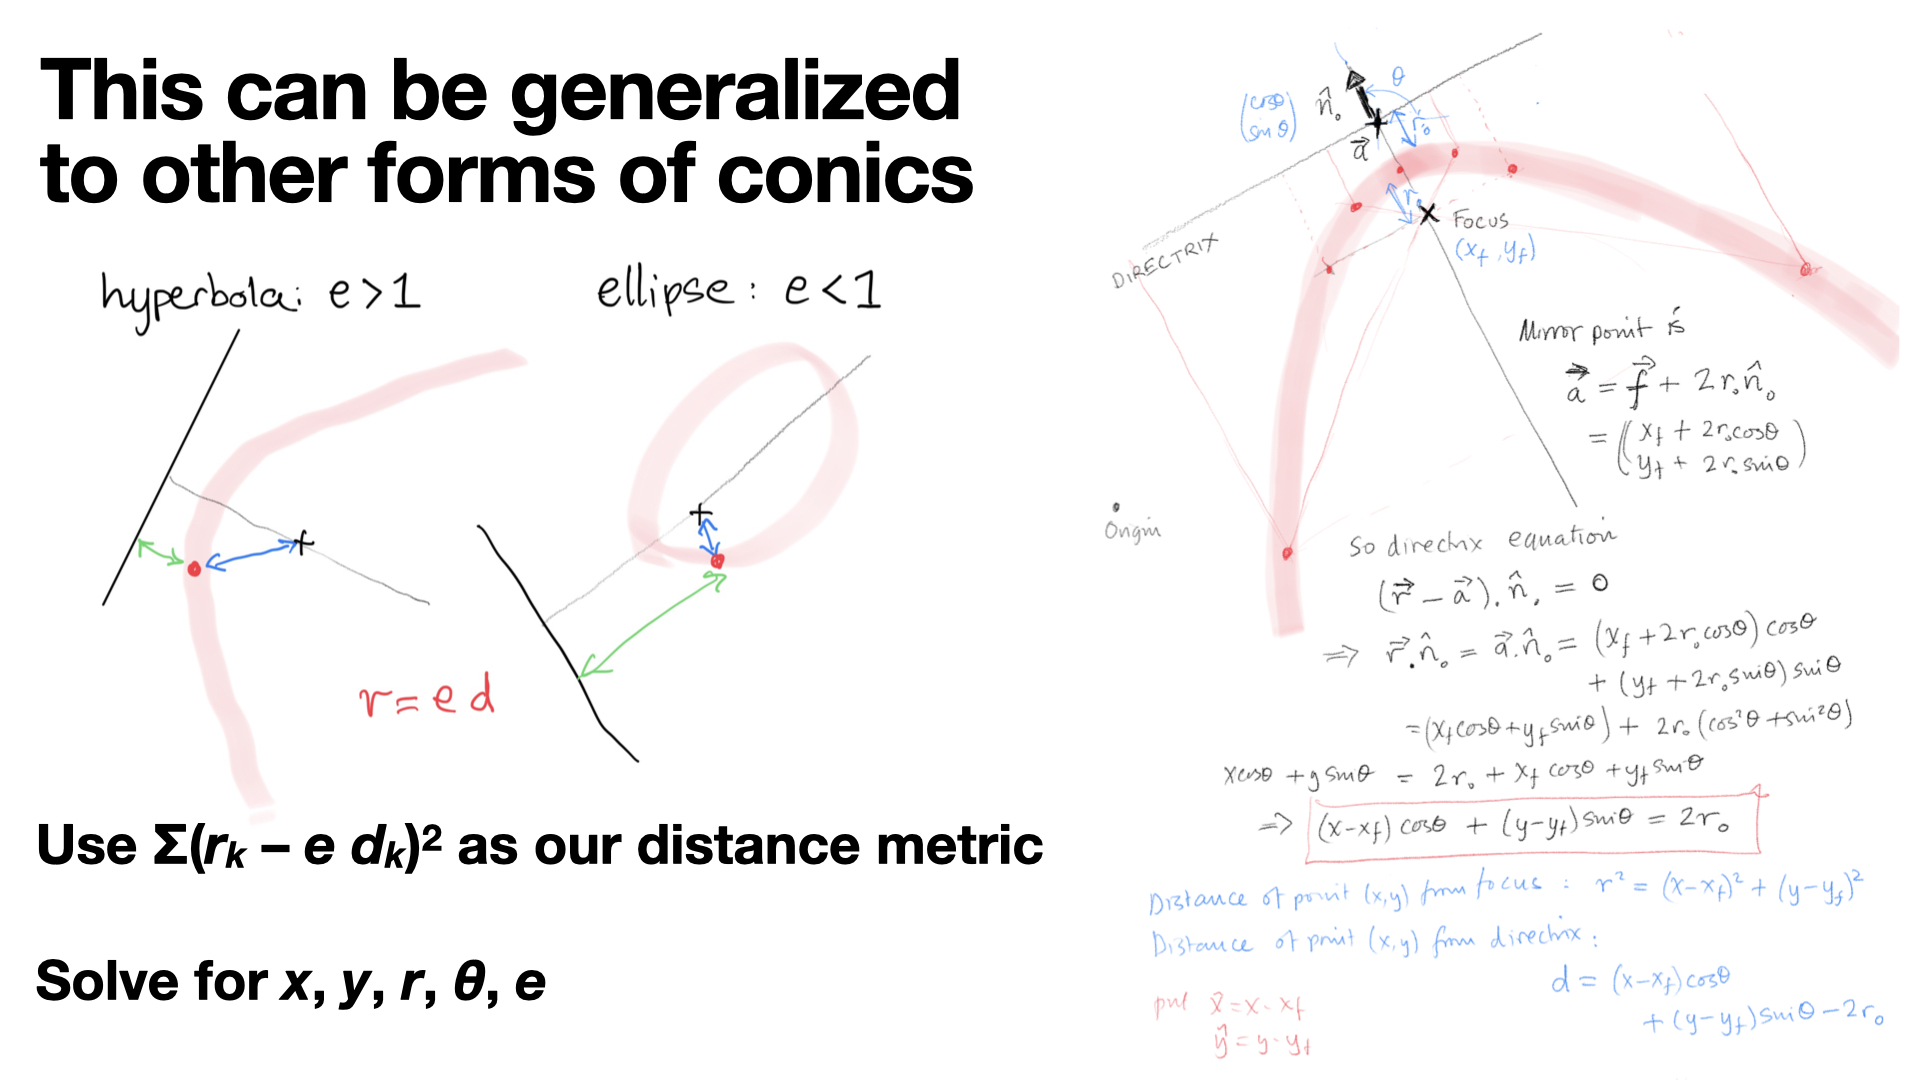 This can be generalized
to other forms of conics
hyperbola: e>1
ellipse: e<1
r = e d
Use Σ(rₖ – e dₖ)² as our distance metric
Solve for x, y, r, θ, e
θ
(cosθ
sinθ)
n̂₀
r₀
a⃗
r₀
Focus
(x_f, y_f)
DIRECTRIX
Mirror point is
a⃗ = f⃗ + 2r₀n̂₀
= (x_f + 2r₀cosθ
y_f + 2r₀sinθ)
Origin
So directrix equation
(r⃗ – a⃗).n̂₀ = 0
⇒ r⃗.n̂₀ = a⃗.n̂₀ = (x_f + 2r₀cosθ) cosθ
+ (y_f + 2r₀sinθ) sinθ
= (x_f cosθ + y_f sinθ) + 2r₀(cos²θ + sin²θ)
xcosθ + ysinθ = 2r₀ + x_f cosθ + y_f sinθ
⇒ (x-x_f) cosθ + (y-y_f) sinθ = 2r₀
Distance of point (x,y) from focus : r² = (x-x_f)² + (y-y_f)²
Distance of point (x,y) from directrix :
d = (x-x_f)cosθ
+ (y-y_f)sinθ – 2r₀
put x̂ = x - x_f
ŷ = y - y_f